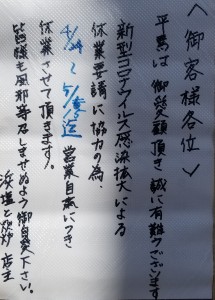 〈御客様各位〉
平素は御愛顧頂き誠に有難うございます
新型コロナウイルス感染拡大による
休業要請に協力の為、
4/24～5/6迄営業自粛につき
休業させて頂きます。
皆様も風邪等召しませぬよう御自愛下さい。
店主